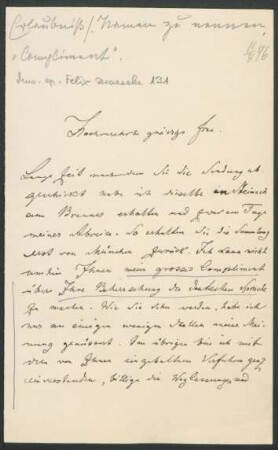 Erlaubniß/. Namen zu nennen,
"Compliment".
Mus. ep. Felix Draeseke 131
Hochverehrte gnädige Frau.
Lange Zeit nachdem Sie die Sendung ab
geschickt habe ich dieselbe in Steinach
am Brenner erhalten und zwar am Tage
meiner Abreise. So erhalten Sie die Sendung
erst von München zurück. Ich kann nicht
umhin Ihnen mein grosses Compliment
über Ihre Beherrschung der deutschen Sprache
zu machen. Wie Sie sehen werden, habe ich
nur an einigen wenigen Stellen meine Mei
nung geäussert. Im übrigen bin ich mit
dem von Ihnen eingehaltenen Verfahren ganz
einverstanden, billige die Weglassungen und